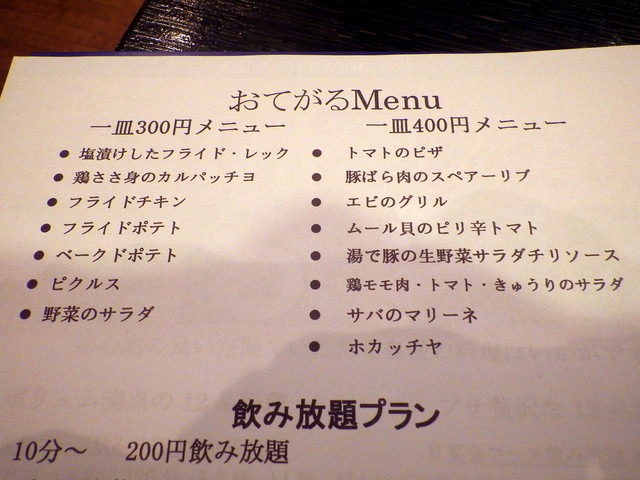 おてがるMenu
一皿300円メニュー
● 塩漬けしたフライド・レック
● 鶏ささ身のカルパッチョ
● フライドチキン
● フライドポテト
● ベークドポテト
● ピクルス
● 野菜のサラダ
一皿400円メニュー
● トマトのピザ
● 豚ばら肉のスペアーリブ
● エビのグリル
● ムール貝のピリ辛トマト
● 湯で豚の生野菜サラダチリソース
● 鶏モモ肉・トマト・きゅうりのサラダ
● サバのマリーネ
● ホカッチヤ
飲み放題プラン
10分～ 200円飲み放題